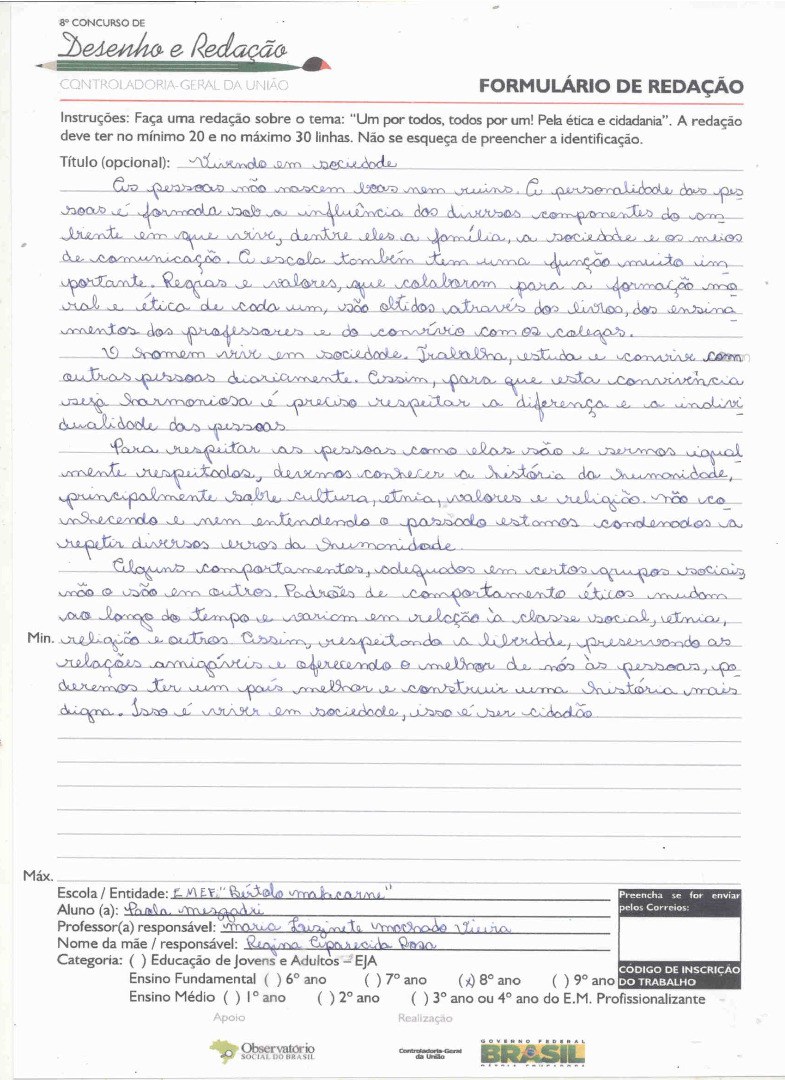 8º CONCURSO DE
Desenho e Redação
CONTROLADORIA-GERAL DA UNIÃO
FORMULÁRIO DE REDAÇÃO
Instruções: Faça uma redação sobre o tema: “Um por todos, todos por um! Pela ética e cidadania”. A redação
deve ter no mínimo 20 e no máximo 30 linhas. Não se esqueça de preencher a identificação.
Título (opcional): Vivendo em sociedade
As pessoas não nascem boas nem ruins. A personalidade das pes
soas é formada sob a influência dos diversos componentes do am
biente em que vive, dentre eles a família, a sociedade e os meios
de comunicação. A escola também tem uma função muito im
portante. Regras e valores, que colaboram para a formação mo
ral e ética de cada um, são obtidos através dos livros, dos ensina
mentos dos professores e do convívio com os colegas.
O homem vive em sociedade. Trabalha, estuda e convive com
outras pessoas diariamente. Assim, para que esta convivência
seja harmoniosa é preciso respeitar a diferença e a indivi
dualidade das pessoas
Para respeitar as pessoas como elas são e sermos igual
mente respeitados, devemos conhecer a história da humanidade,
principalmente sobre cultura, etnia, valores e religião. Não co
nhecendo e nem entendendo o passado estamos condenados a
repetir diversos erros da humanidade.
Alguns comportamentos, adequados em certos grupos sociais
não o são em outros. Padrões de comportamento éticos mudam
ao longo do tempo e variam em relação à classe social, etnia,
Min. religião e outros. Assim, respeitando a liberdade, preservando as
relações amigáveis e oferecendo o melhor de nós às pessoas, po
deremos ter um país melhor e construir uma história mais
digna. Isso é viver em sociedade, isso é ser cidadão
Máx.
Escola / Entidade: EMEF. "Bértolo Malacarne"
Aluno (a): Paola Mezzadri
Professor(a) responsável: Maria Luzinete Machado Vieira
Nome da mãe / responsável: Regina Aparecida Rosa
Categoria: ( ) Educação de Jovens e Adultos – EJA
Ensino Fundamental ( ) 6º ano ( ) 7º ano (x) 8º ano ( ) 9º ano
Ensino Médio ( ) 1º ano ( ) 2º ano ( ) 3º ano ou 4º ano do E.M. Profissionalizante
Preencha se for enviar
pelos Correios:
CÓDIGO DE INSCRIÇÃO
DO TRABALHO
Apoio
Realização
Observatório
SOCIAL DO BRASIL
Controladoria-Geral
da União
GOVERNO FEDERAL
BRASIL